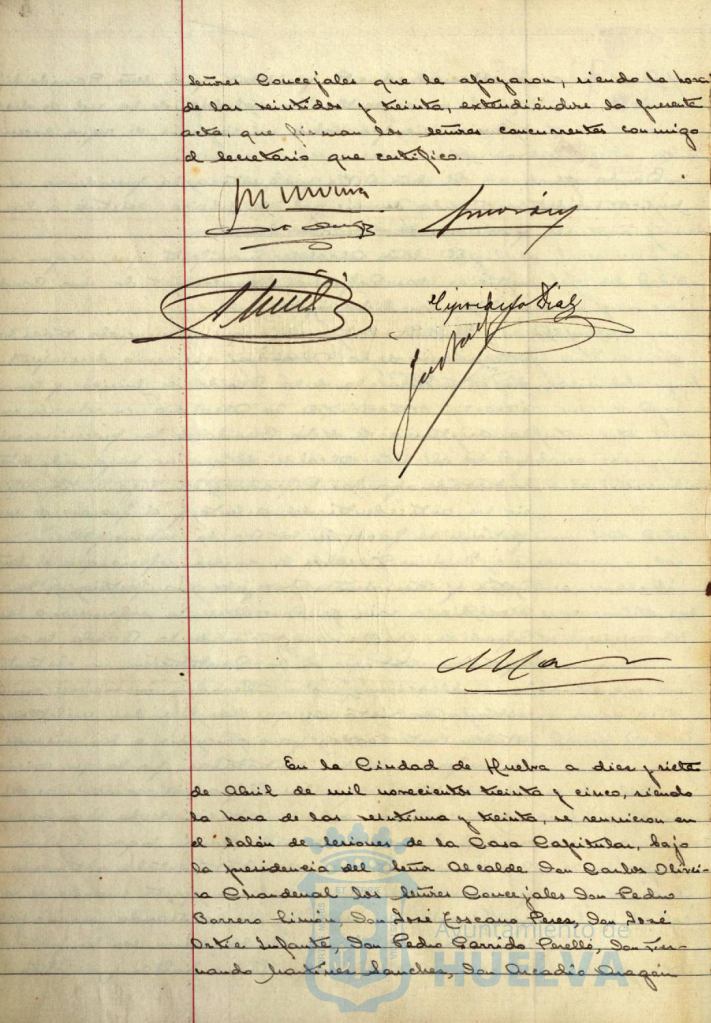 señores Concejales que la apoyaron, siendo la hora
de las veintidos y treinta, extendiéndose la presente
acta, que firman los señores concurrentes conmigo
el Secretario que certifico.
Cipriano Diaz
En la Ciudad de Huelva a diez y siete
de Abril de mil novecientos treinta y cinco, siendo
la hora de las veintiuna y treinta, se reunieron en
el Salón de Sesiones de la Casa Capitular, bajo
la presidencia del Señor Alcalde Don Carlos Olivei-
ra Chardenal los Señores Concejales Don Pedro
Borrero Limón, Don José Toscano Perez, Don José
Ortiz Infante, Don Pedro Garrido Perelló, Don Fer-
nando Martinez Sanchez, Don Arcadio Aragón
Ayuntamiento de
HUELVA